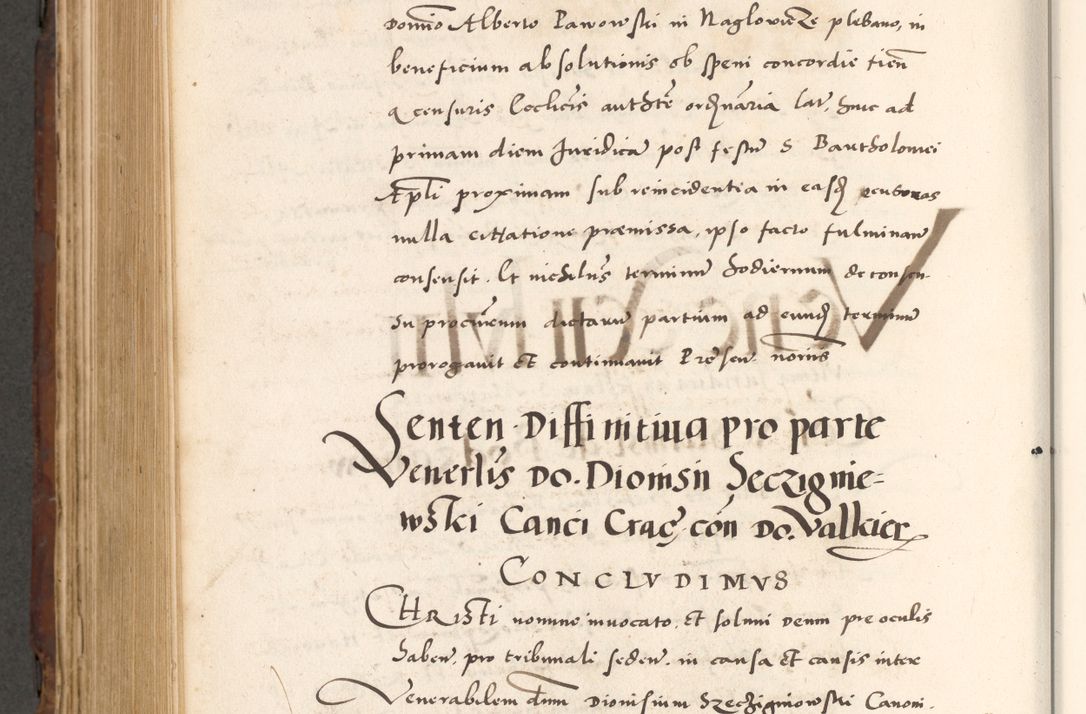 Domino Alberto Pawowski in Naglowicze plebano, in
beneficium absolutionis ob spem concordie fien
a censuris Ecclicis authte ordinaria lat, hinc ad
primam diem Juridica post festu S Bartholomei
Apli proximam sub reincidentia in easd censuras
nulla cittatione præmissa, ipso facto fulminan
consensit. Et nichilus terminu hodiernum de consen
su procurum dictaru partium ad eund terminu
prorogavit et continuavit Presen. norus
Senten Diffinitiua pro parte
Venerlis Do. Dionisii Seczignie=
wski Canci Crac. con Do. Valkier
CONCLVDIMVS
CHRisti nomine invocato, et solum deum pre oculis
haben. pro tribunali seden. in causa et causis inter
Venerabilem dnum Dionisium Szeczigniowski Canoni.